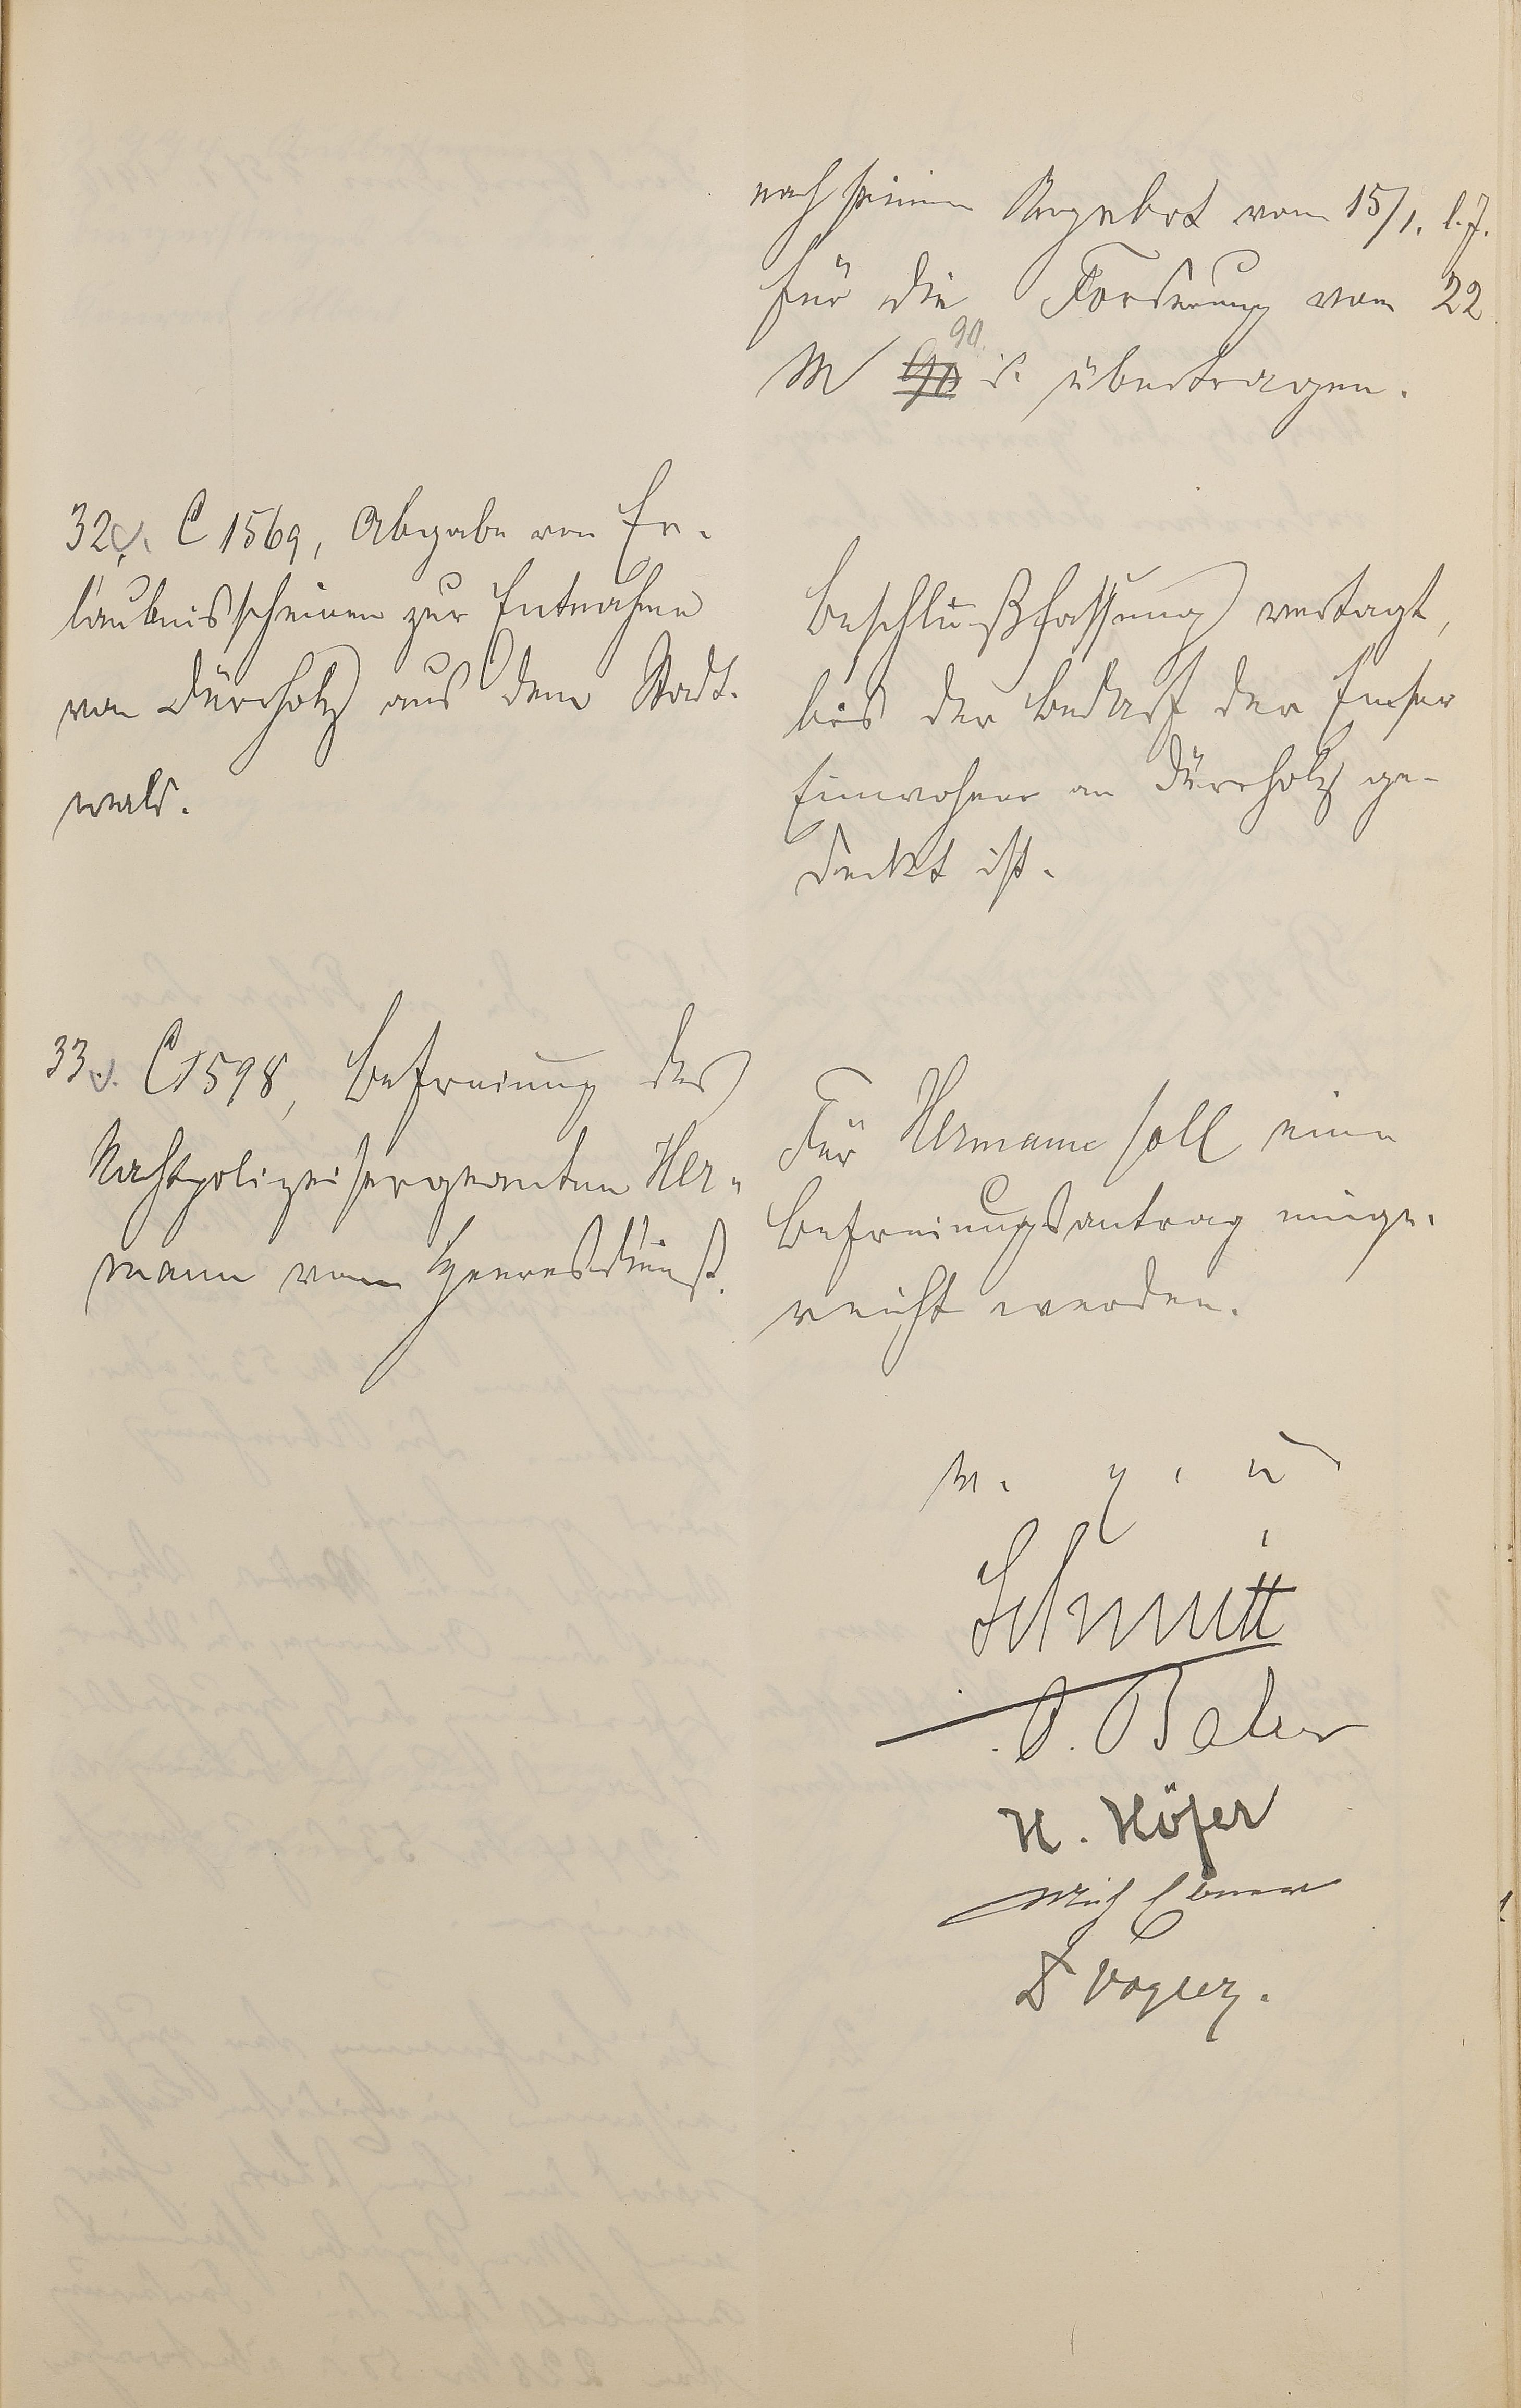 nach seinem Angebot vom 15/1. l. J.
für die Forderung von 22
M 90 S. übertragen.
32. C 1569, Abgabe von Er-
laubnisscheinen zur Entnahme
von Dürrholz aus dem Stadt-
wald.
Beschlußfassung vertagt,
bis der Bedarf der Emser
Einwohner an Dürrholz ge-
deckt ist.
33. C 1598, Befreiung des
Nachtpolizeisergeanten Her-
mann vom Heeresdienst.
Für Hermann soll ein
Befreiungsantrag einge-
reicht werden.
w. g. u.
Schmitt
H. Höfer